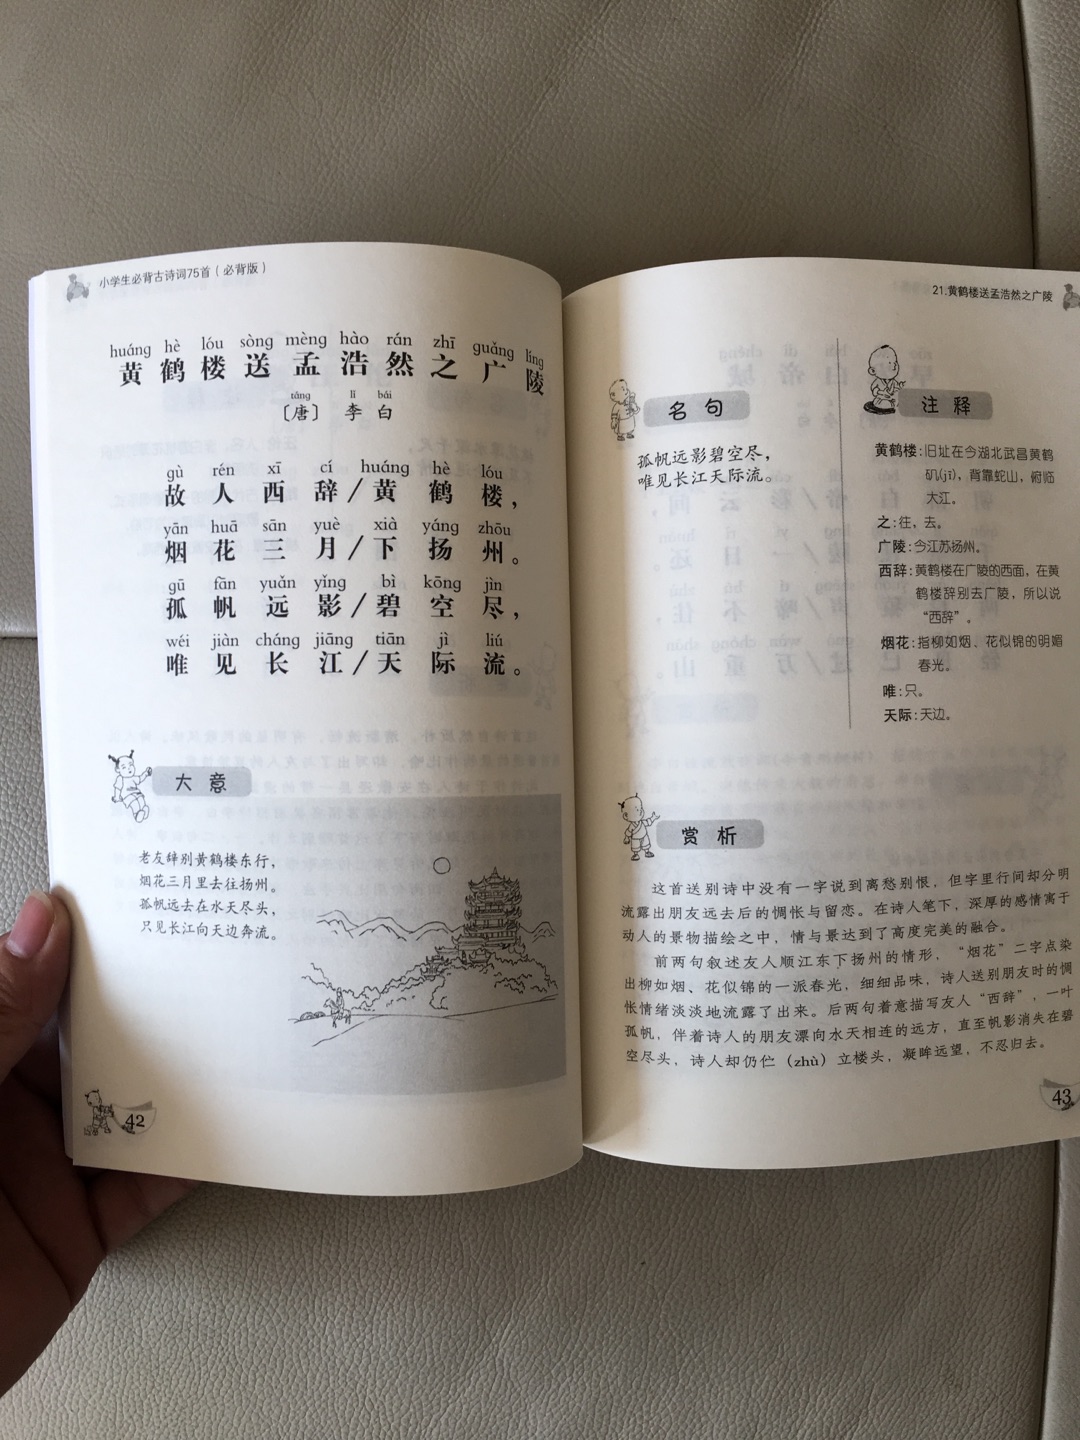 小学生必背古诗词75首（必背版）
huáng hè lóu sòng mèng hào rán zhī guǎng líng
黄鹤楼送孟浩然之广陵
táng lǐ bái
〔唐〕李白
gù rén xī cí huáng hè lóu
故人西辞/黄鹤楼，
yān huā sān yuè xià yáng zhōu
烟花三月/下扬州。
gū fān yuǎn yǐng bì kōng jìn
孤帆远影/碧空尽，
wéi jiàn cháng jiāng tiān jì liú
唯见长江/天际流。
大意
老友辞别黄鹤楼东行，
烟花三月里去往扬州。
孤帆远去在水天尽头，
只见长江向天边奔流。
42
21.黄鹤楼送孟浩然之广陵
名句
孤帆远影碧空尽，
唯见长江天际流。
注释
黄鹤楼：旧址在今湖北武昌黄鹤
矶(jī)，背靠蛇山，俯临
大江。
之：往，去。
广陵：今江苏扬州。
西辞：黄鹤楼在广陵的西面，在黄
鹤楼辞别去广陵，所以说
“西辞”。
烟花：指柳如烟、花似锦的明媚
春光。
唯：只。
天际：天边。
赏析
这首送别诗中没有一字说到离愁别恨，但字里行间却分明
流露出朋友远去后的惆怅与留恋。在诗人笔下，深厚的感情寓于
动人的景物描绘之中，情与景达到了高度完美的融合。
前两句叙述友人顺江东下扬州的情形，“烟花”二字点染
出柳如烟、花似锦的一派春光，细细品味，诗人送别朋友时的惆
怅情绪淡淡地流露了出来。后两句着意描写友人“西辞”，一叶
孤帆，伴着诗人的朋友漂向水天相连的远方，直至帆影消失在碧
空尽头，诗人却仍伫（zhù）立楼头，凝眸远望，不忍归去。
43